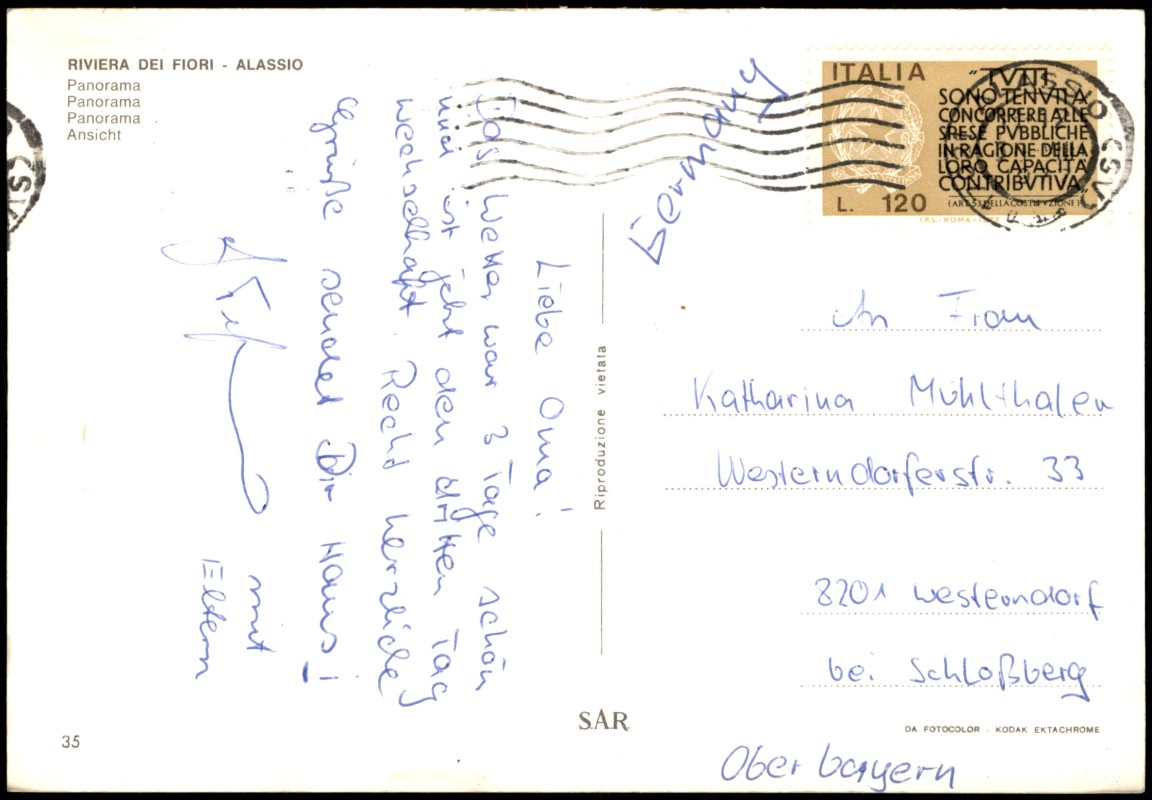 RIVIERA DEI FIORI - ALASSIO
Panorama
Panorama
Panorama
Ansicht
Liebe Oma!
Das Wetter war 3 Tage schön
und ist jetzt den dritten Tag
wechselhaft. Recht herzliche
Grüße sendet Dir Hans!
mit
Eltern
35
Riproduzione vietata
SAR
Germany
ITALIA
"TVTTI
SONO TENVTI A
CONCORRERE ALLE
SPESE PVBBLICHE
IN RAGIONE DELLA
LORO CAPACITA'
CONTRIBVTIVA"
(ART. 53 DELLA COSTITVZIONE)
L. 120
I.P.S.-ROMA-1977
An Frau
Katharina Mühlthaler
Westerndorferstr. 33
8201 Westerndorf
bei Schloßberg
DA FOTOCOLOR - KODAK EKTACHROME
Oberbayern